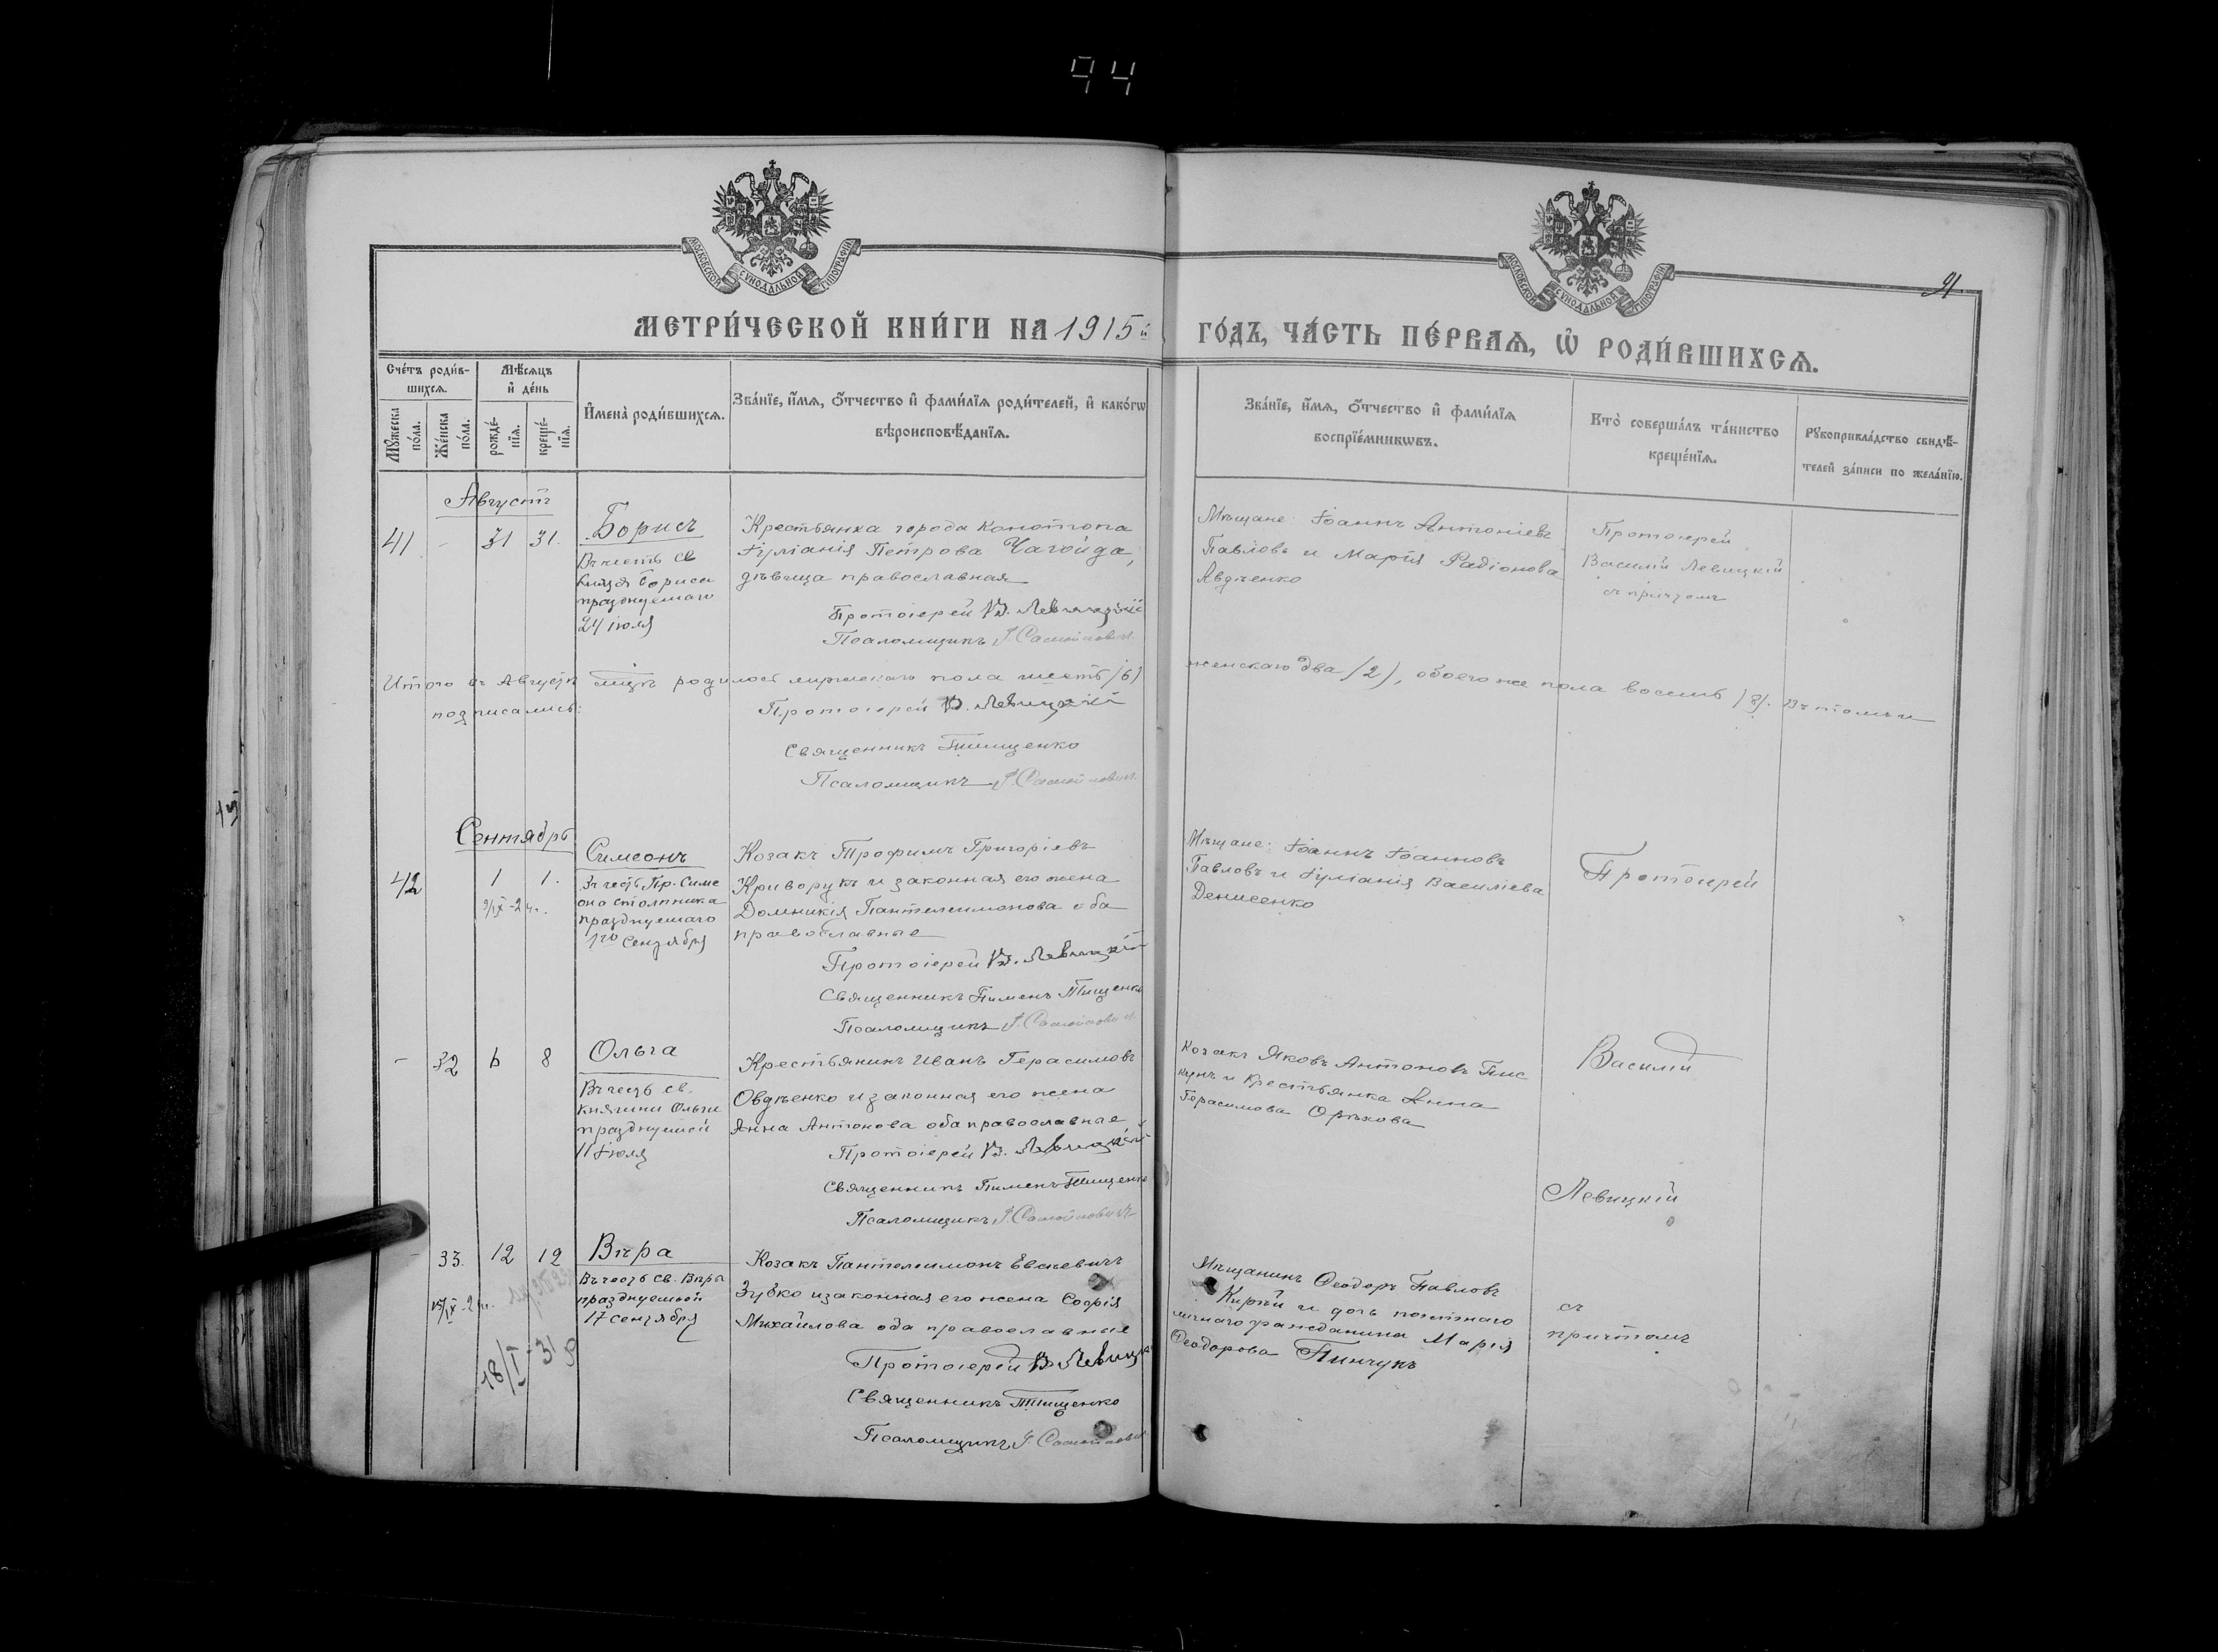 94
МОСКОВСКОЙ СѴНОДАЛЬНОЙ ТИПОГРАФІИ
МОСКОВСКОЙ СѴНОДАЛЬНОЙ ТИПОГРАФІИ
91.
МЕТРИ́ЧЕСКОЙ КНИ́ГИ НА 1915й
ГО́ДЪ, ЧА́СТЬ ПЕ́РВАѦ, Ѡ҆ РОДИ́ВШИХСѦ.
Сче́тъ роди́в-
шихсѧ.
Мѹ́жеска
по́ла.
Же́нска
по́ла.
Мѣ́сѧцъ
и҆ де́нь
рожде́-
нїѧ.
креще́-
нїѧ.
И҆мена̀ роди́вшихсѧ.
Зва́нїе, и҆́мѧ, ѻ҆́тчество и҆ фами́лїѧ роди́телей, и҆ како́гѡ
вѣроисповѣ́данїѧ.
Зва́нїе, и҆́мѧ, ѻ҆́тчество и҆ фами́лїѧ
воспрїе́мникѡвъ.
Кто̀ соверша́лъ та́инство
креще́нїѧ.
Рѹкоприкла́дство свидѣ́-
телей за́писи по жела́нїю.
Августъ
41. - 31 31.
Борисъ
Въ честь св
Князя Бориса
празднуемаго
24 іюля
Крестьянка города Конотопа
Іуліанія Петрова Чагойда,
дѣвица православная
Протоіерей В. Левицкій
Псаломщикъ
Мѣщане: Іоаннъ Антоніевъ
Павловъ и Марія Радіонова
Авдѣенко
Протоіерей
Василій Левицкій
съ причтомъ
Итого въ Августѣ мцѣ родилось мужескаго пола шесть (6)
женскаго два (2), обоего же пола восемь (8). Въ томъ и
подписались:
Протоіерей В. Левицкій
Священникъ Тищенко
Псаломщикъ
Сентябрь
42 1 1.
9/IX-2
Симеонъ
Въ честь Пр. Симе
она столпника
празднуемаго
1го Сентября
Козакъ Трофимъ Григоріевъ
Криворукъ и законная его жена
Домникія Пантелеимонова оба
православные
Протоіерей В. Левицкій
Священникъ Пименъ Тищенко
Псаломщикъ
Мѣщане: Іоаннъ Іоанновъ
Павловъ и Іуліанія Василіева
Денисенко
Протоіерей
- 32 6 8
Ольга
Въ честь св.
княгини Ольги
празднуемой
11 Іюля
Крестьянинъ Иванъ Герасимовъ
Овдѣенко и законная его жена
Анна Антонова оба православные
Протоіерей В. Левицкій
Священникъ Пименъ Тищенко
Псаломщикъ
Козакъ Яковъ Антоновъ Пис
кунъ и крестьянка Анна
Герасимова Орѣхова
Василій
Левицкій
- 33. 12 12
18/I-31
Вѣра
Въ честь св. Вѣры
празднуемой
17 сентября
Козакъ Пантелеимонъ Евсіевичъ
Зубко и законная его жена Софія
Михайлова оба православные
Протоіерей В. Левицкій
Священникъ Тищенко
Псаломщикъ
Мѣщанинъ Ѳеодоръ Павловъ
Кирѣй и дочь почетнаго
личнаго гражданина Марія
Ѳеодорова Пинчукъ
съ
причтомъ